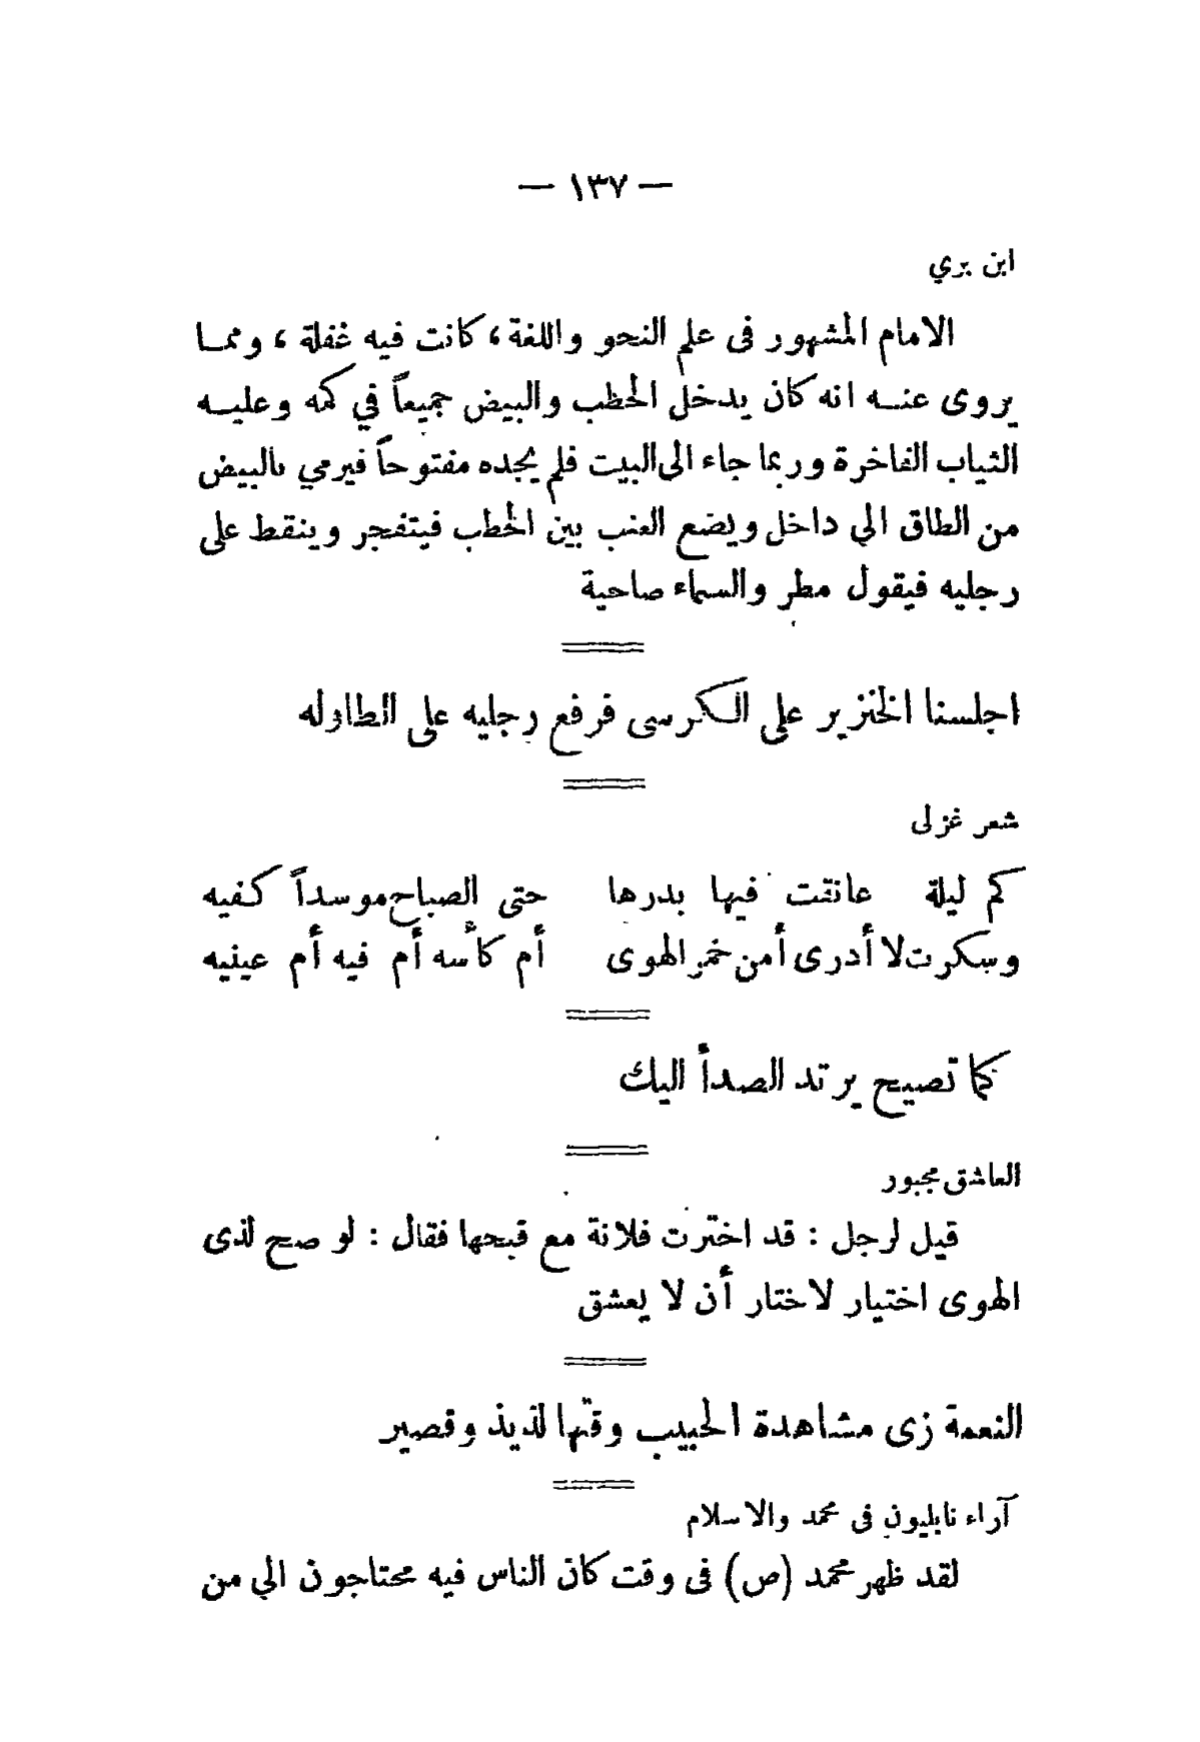 — ١٣٧ —
ابن بري
الامام المشهور فى علم النحو واللغة، كانت فيه غفلة، ومما
يروى عنه انه كان يدخل الحظب والبيض جميعاً في كمه وعليه
الثياب الفاخرة وربما جاء الى البيت فلم يجده مفتوحاً فيرمي بالبيض
من الطاق الي داخل ويضع العنب بين الخطب فيتفجر وينقط على
رجليه فيقول مطر والسماء صاحية
اجلسنا الخنزير على الكرسى فرفع رجليه على الطاوله
شعر غزلى
كم ليلة عانقت فيها بدرها حتى الصباح موسداً كفيه
وسكرت لا أدرى أمن خمر الهوى أم كأسه أم فيه أم عينيه
كما تصيح يرتد الصدأ اليك
العاشق مجبور
قيل لرجل : قد اخترت فلانة مع قبحها فقال : لو صح لذى
الهوى اختيار لاختار أن لا يعشق
النعمة زى مشاهدة الحبيب وقتها لذيذ وقصير
آراء نابليون فى محمد والاسلام
لقد ظهر محمد (ص) فى وقت كان الناس فيه محتاجون الي من